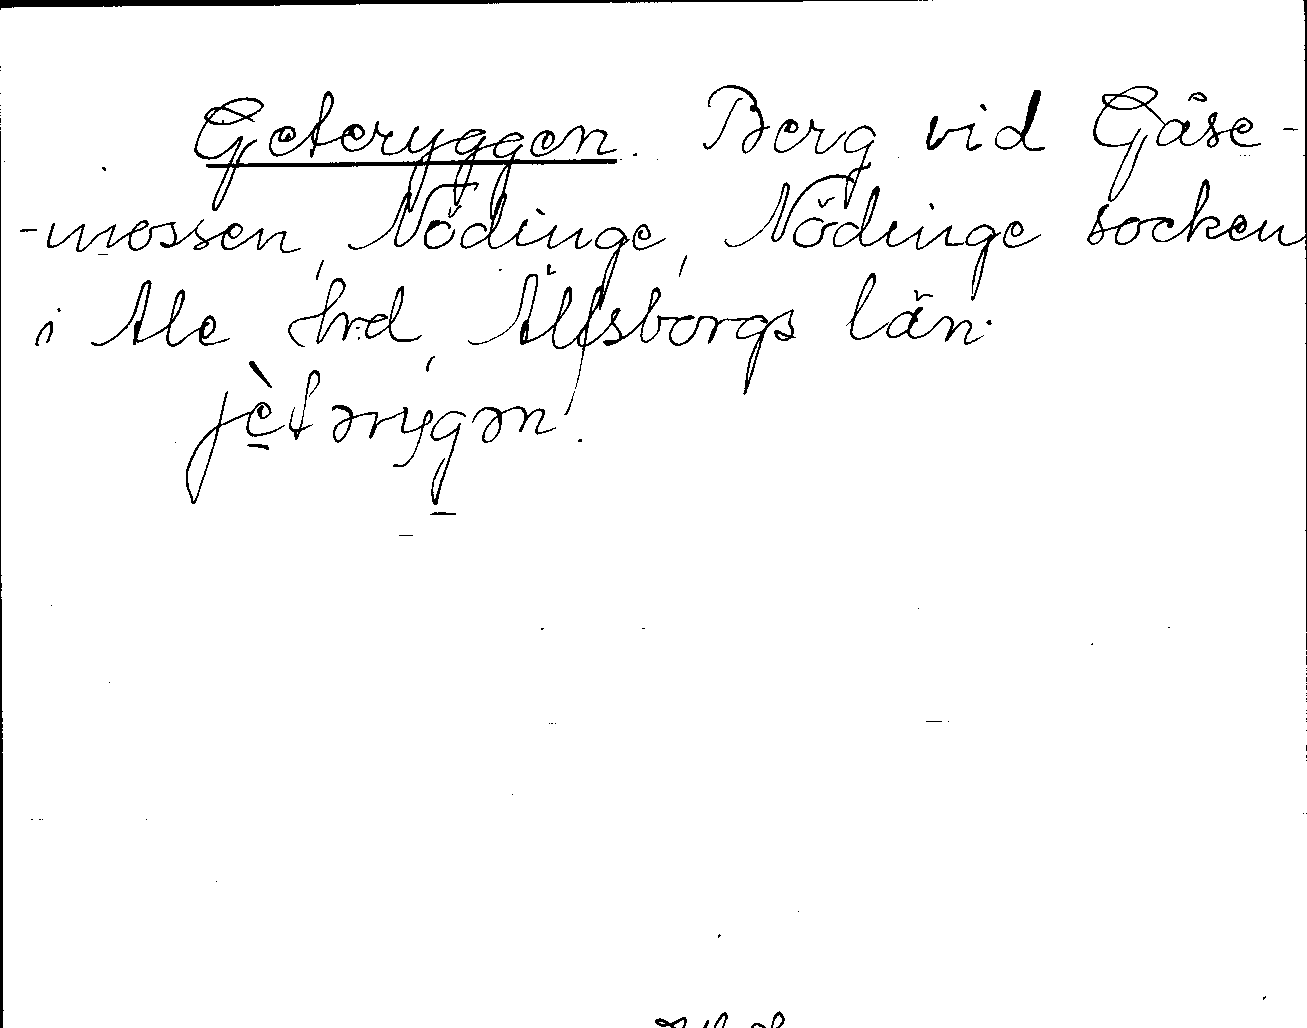 Geteryggen. Berg vid Gåse-
-mossen, Nödinge, Nödinge socken
i Ale hrd, Älfsborgs län.
jètərygən.